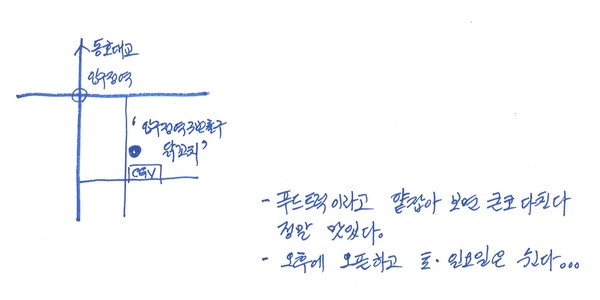 동호대교
압구정역
'압구정역3번출구
닭꼬치'
CGV
- 푸드트럭이라고 얕잡아 보면 큰코 다친다
정말 맛있다.
- 오후에 오픈하고 토·일요일은 쉰다...